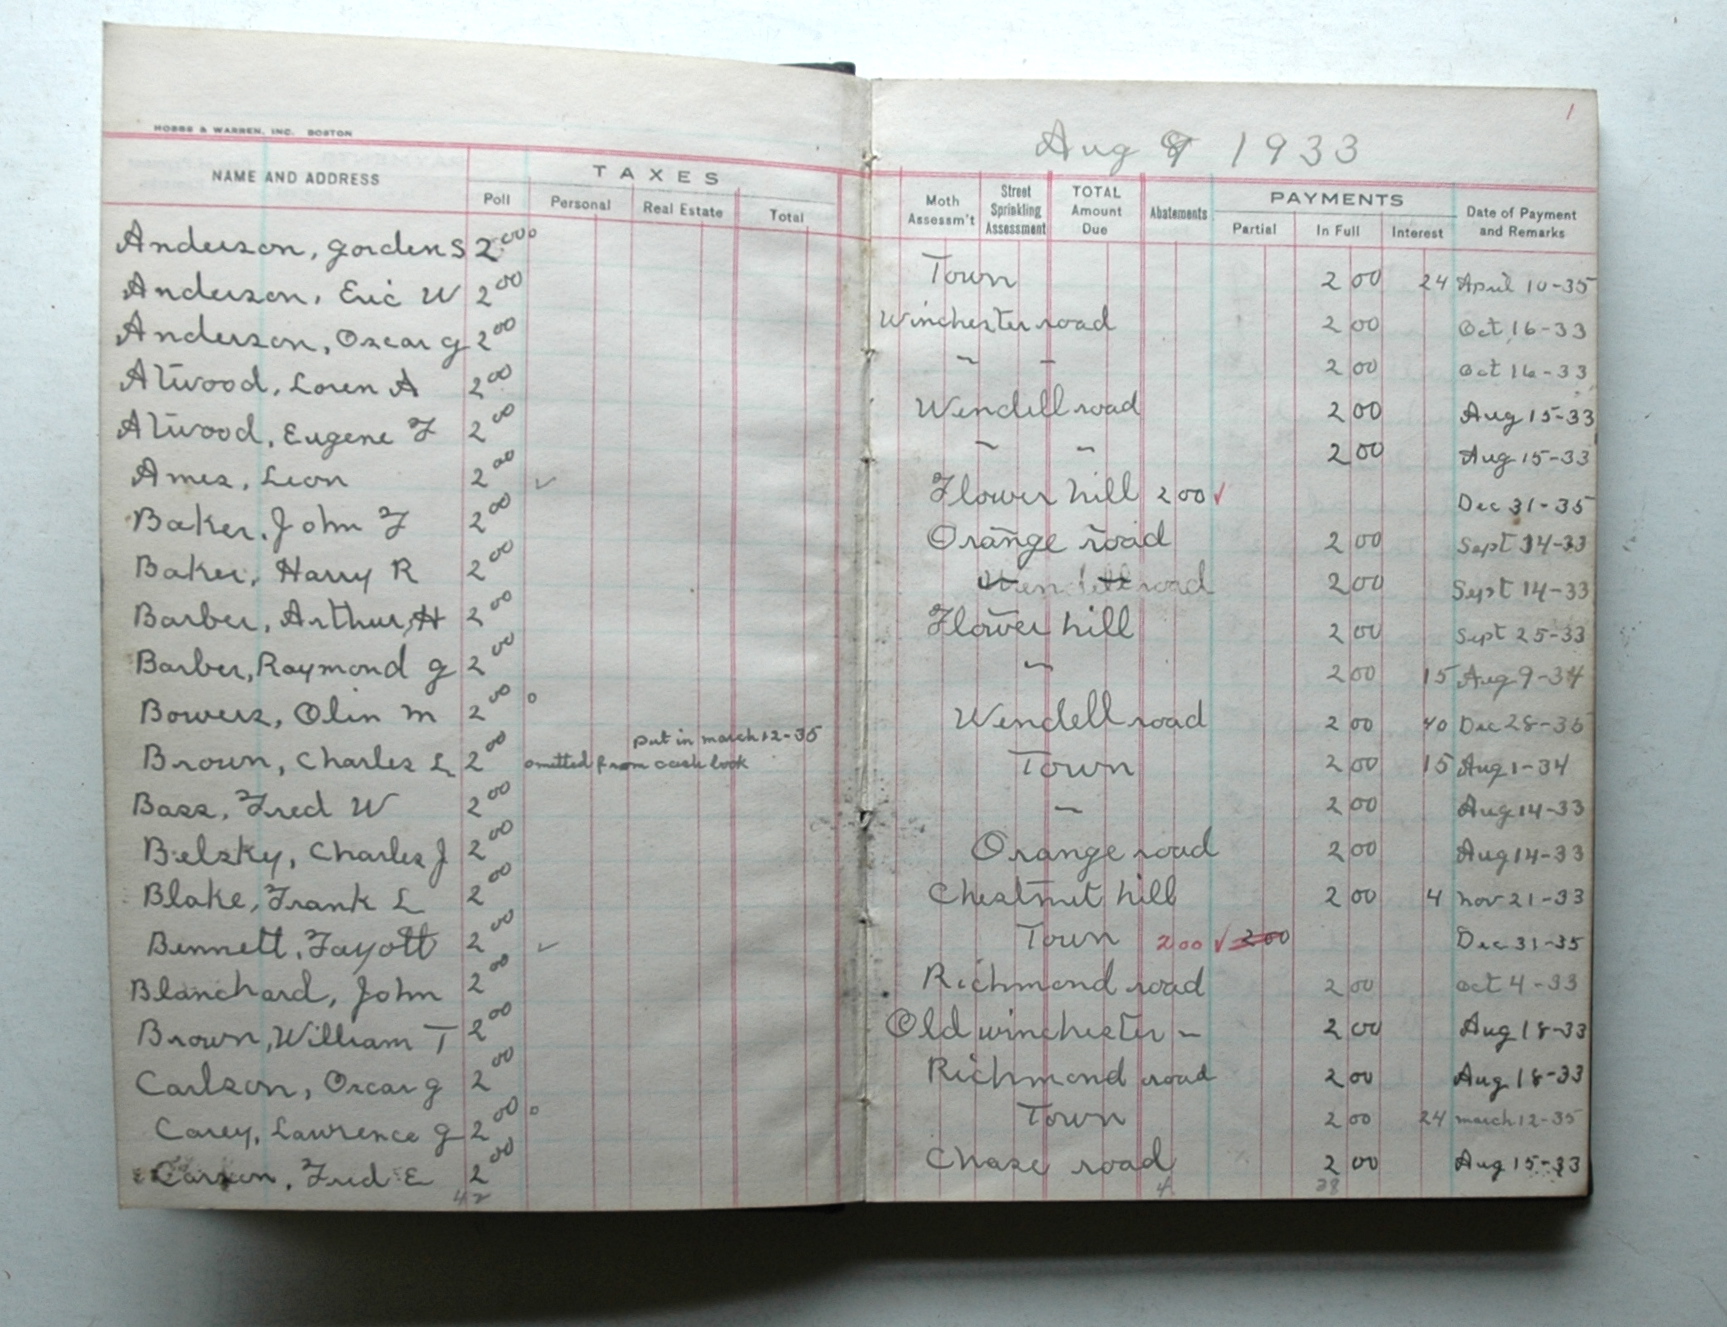 HOBBS & WARREN, INC. BOSTON
1
Aug 1933
NAME AND ADDRESS
TAXES
Poll Personal Real Estate Total
Moth Assessm't Street Sprinkling Assessment TOTAL Amount Due Abatements PAYMENTS Partial In Full Interest Date of Payment and Remarks
Anderson, Gorden S 2.00 o Town 2 00 24 April 10-35
Anderson, Eric W 2 00 Winchester road 2 00 Oct 16-33
Anderson, Oscar G 2 00 ~ ~ 2 00 Oct 16-33
Atwood, Loren A 2 00 Wendell road 2 00 Aug 15-33
Atwood, Eugene F 2 00 ~ ~ 2 00 Aug 15-33
Ames, Leon 2 00 ✓ Flower hill 2 00 ✓ Dec 31-35
Baker, John F 2 00 Orange road 2 00 Sept 14-33
Baker, Harry R 2 00 Wendell road 2 00 Sept 14-33
Barber, Arthur H 2 00 Flower hill 2 00 Sept 25-33
Barber, Raymond G 2 00 ~ 2 00 15 Aug 9-34
Bowers, Olin M 2 00 o Wendell road 2 00 40 Dec 28-36
put in march 12-35
Brown, Charles L 2 00 omitted from cash book Town 2 00 15 Aug 1-34
Bass, Fred W 2 00 ~ 2 00 Aug 14-33
Belsky, Charles J 2 00 Orange road 2 00 Aug 14-33
Blake, Frank L 2 00 Chestnut hill 2 00 4 Nov 21-33
Bennett, Fayott 2 00 ✓ Town 2 00 ✓ 2 00 Dec 31-35
Blanchard, John 2 00 Richmond road 2 00 Oct 4-33
Brown, William T 2 00 Old winchester ~ 2 00 Aug 18-33
Carlson, Oscar G 2 00 Richmond road 2 00 Aug 18-33
Carey, Lawrence G 2 00 o Town 2 00 24 march 12-35
Carson, Fred E 2 00 Chase road 2 00 Aug 15-33
42 4 38